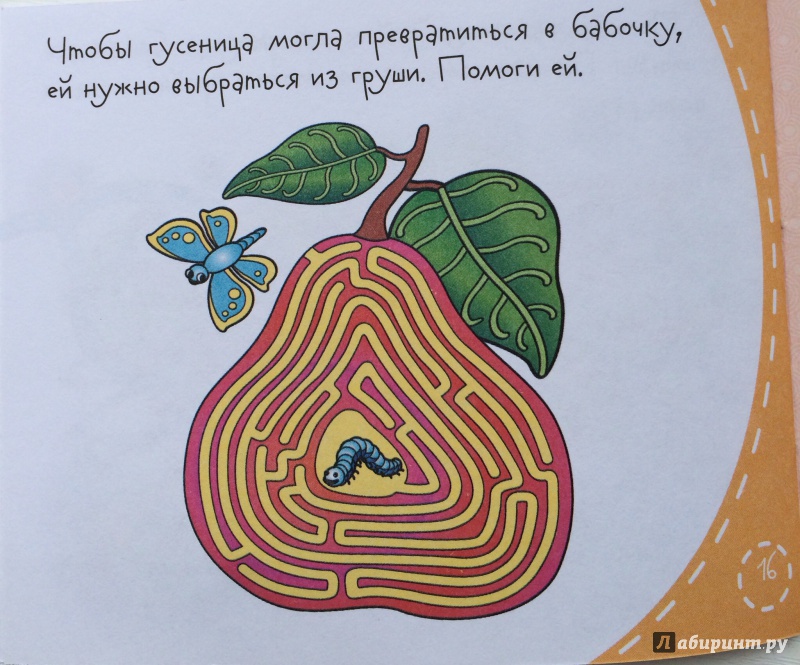 Чтобы гусеница могла превратиться в бабочку,
ей нужно выбраться из груши. Помоги ей.
16
Лабиринт.ру